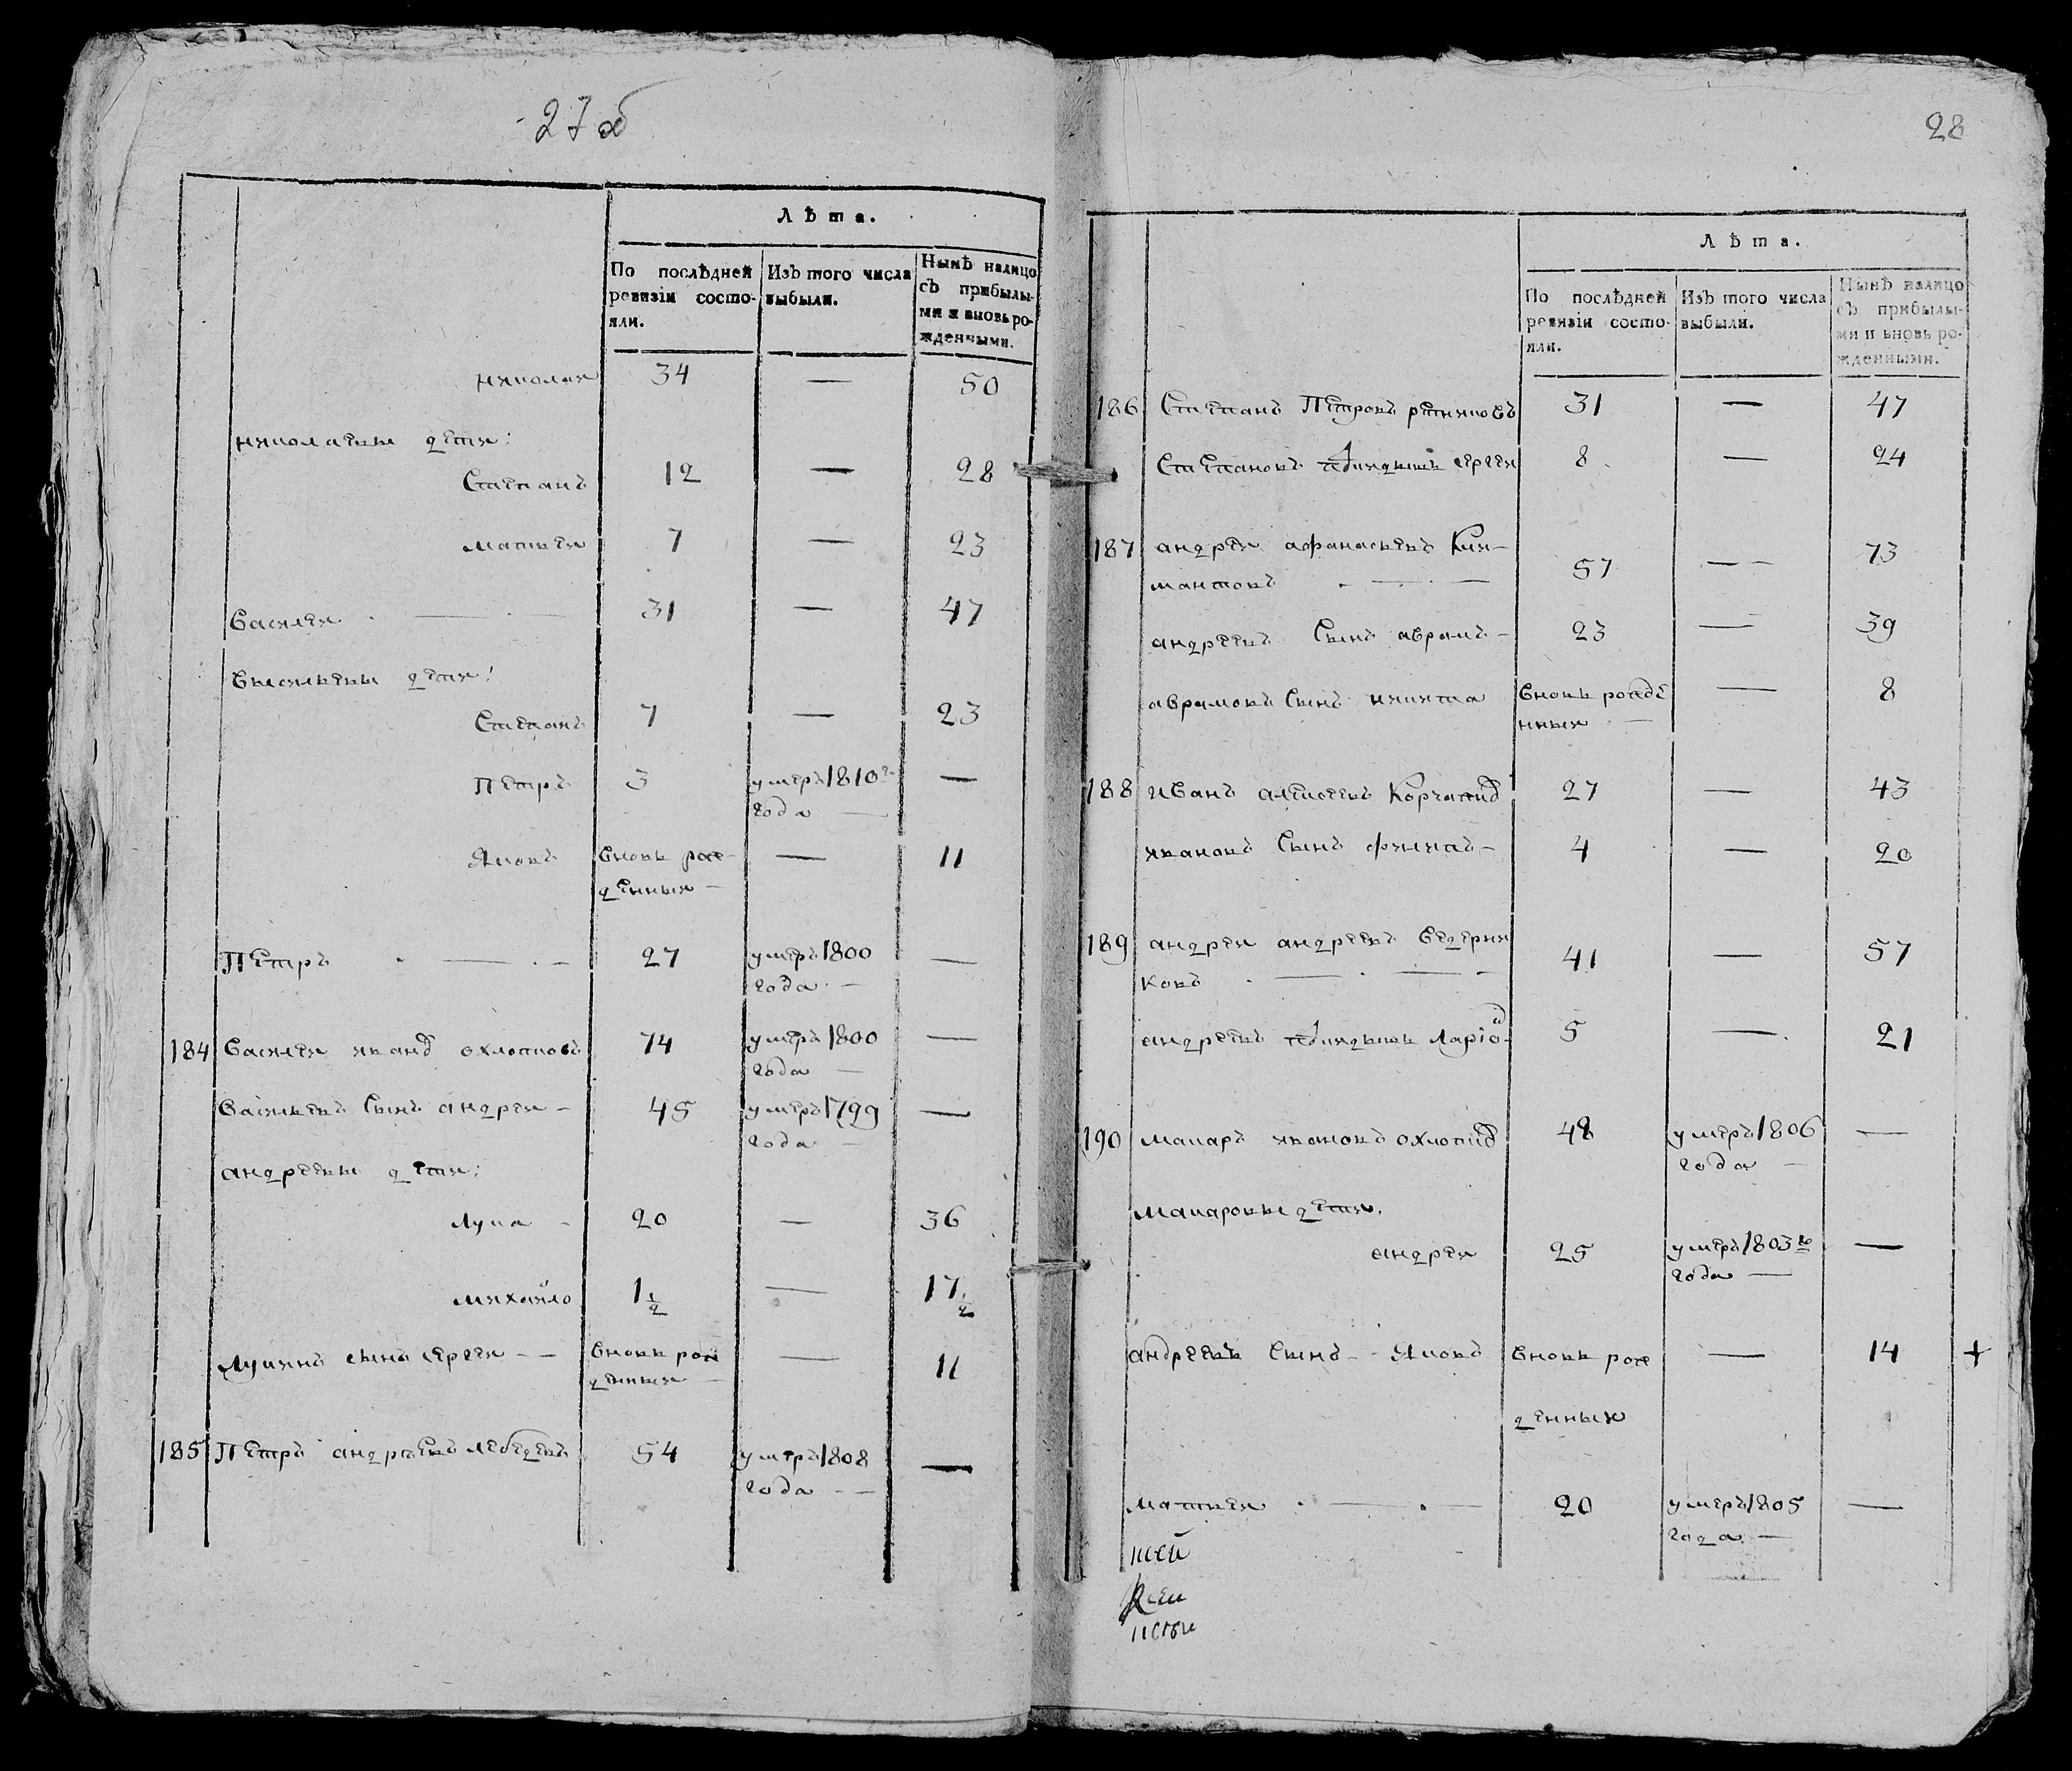 27 об
Лѣта.
По послѣдней ревизіи состояли.
Изъ того числа выбыли.
Нынѣ налицо съ прибылыми и вновь рожденными.
николаи 34 — 50
николаевы дети:
Степанъ 12 — 28
матвеи 7 — 23
Василеи — 31 — 47
Васильевы дети:
Степанъ 7 — 23
Петръ 3 умеръ 1810го —
года —
Яковъ Вновь рож- — 11
денныи —
Петръ — 27 умеръ 1800 —
года —
184 Василеи иванов охлопковъ 74 умеръ 1800 —
года —
Васильевъ Сынъ андреи — 45 умеръ 1799 —
года —
андреевы дети:
Лука — 20 — 36
михайло 1 1/2 — 17 1/2
Лукинъ сынъ сергеи — — Вновь рож — 11
денныи —
185 Петръ андреевъ лебедевъ 54 умеръ 1808 —
года —
28
Лѣта.
По послѣдней ревизіи состояли.
Изъ того числа выбыли.
Нынѣ налицо съ прибылыми и вновь рожденными.
186 Степанъ Петровъ 31 — 47
Степановъ сергеи 8 — 24
187 андреи афанасьевъ Кли-
мантовъ — — 57 — 73
андреевъ Сынъ аврамъ — 23 — 39
аврамовъ Сынъ никита Вновь рожде — 8
нныи —
188 иванъ алексеевъ 27 — 43
ивановъ Сынъ филипъ — 4 — 20
189 андреи андреевъ Ведерни
ковъ — — 41 — 57
андреевъ Ларіо 5 — 21
190 макаръ ивановъ охлопков 48 умеръ 1806 —
года —
макаровы дети.
андреи 25 умеръ 1803го —
года —
андреевъ Сынъ — Яковъ Вновь рож — 14 +
денныи
матвеи — 20 умеръ 1805 —
года —